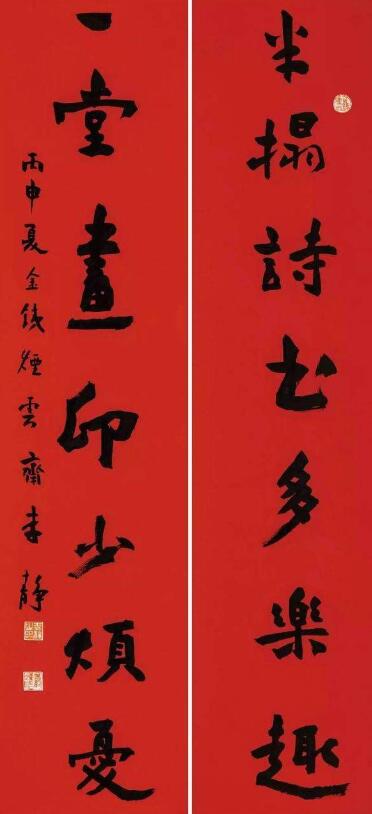 半榻詩书多樂趣
一堂畫印少煩憂
丙申夏金錢煙雲齋靜